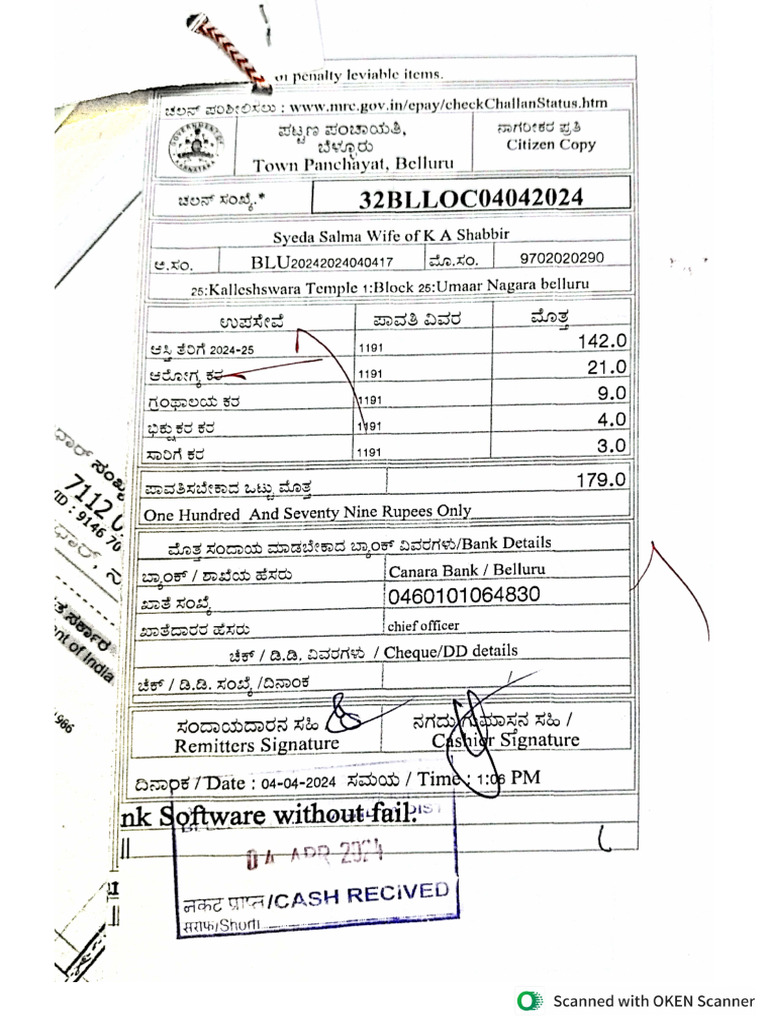 of penalty leviable items.
ಚಲನ್ ಪರಿಶೀಲಿಸಲು : www.mrc.gov.in/epay/checkChallanStatus.htm
GOVERNMENT OF KARNATAKA
ಪಟ್ಟಣ ಪಂಚಾಯತಿ,
ಬೆಳ್ಳೂರು
Town Panchayat, Belluru
ನಾಗರೀಕರ ಪ್ರತಿ
Citizen Copy
ಚಲನ್ ಸಂಖ್ಯೆ.* 32BLLOC04042024
Syeda Salma Wife of K A Shabbir
ಆ.ಸಂ. BLU20242024040417 ಮೊ.ಸಂ. 9702020290
25:Kalleshswara Temple 1:Block 25:Umaar Nagara belluru
ಉಪಸೇವೆ ಪಾವತಿ ವಿವರ ಮೊತ್ತ
ಆಸ್ತಿ ತೆರಿಗೆ 2024-25 1191 142.0
ಆರೋಗ್ಯ ಕರ 1191 21.0
ಗ್ರಂಥಾಲಯ ಕರ 1191 9.0
ಭಿಕ್ಷುಕರ ಕರ 1191 4.0
ಸಾರಿಗೆ ಕರ 1191 3.0
ಪಾವತಿಸಬೇಕಾದ ಒಟ್ಟು ಮೊತ್ತ 179.0
One Hundred And Seventy Nine Rupees Only
ಮೊತ್ತ ಸಂದಾಯ ಮಾಡಬೇಕಾದ ಬ್ಯಾಂಕ್ ವಿವರಗಳು/Bank Details
ಬ್ಯಾಂಕ್ / ಶಾಖೆಯ ಹೆಸರು Canara Bank / Belluru
ಖಾತೆ ಸಂಖ್ಯೆ 0460101064830
ಖಾತೆದಾರರ ಹೆಸರು chief officer
ಚೆಕ್ / ಡಿ.ಡಿ. ವಿವರಗಳು / Cheque/DD details
ಚೆಕ್ / ಡಿ.ಡಿ. ಸಂಖ್ಯೆ /ದಿನಾಂಕ
ಸಂದಾಯದಾರನ ಸಹಿ
Remitters Signature
ನಗದು ಗುಮಾಸ್ತನ ಸಹಿ /
Cashier Signature
ದಿನಾಂಕ / Date : 04-04-2024 ಸಮಯ / Time : 1:06 PM
nk Software without fail.
04 APR 2024
नकद प्राप्त/CASH RECIVED
सराफ/Shorff
7112 0
ID : 9146 70
nt of India
1986
Scanned with OKEN Scanner